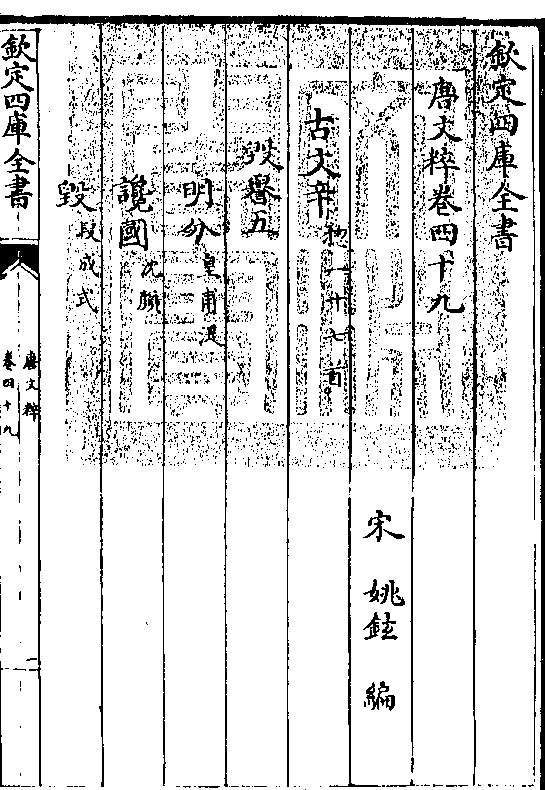 欽定四庫全書
唐文粹卷四十九
宋 姚鉉 編
古文辛 總一十七首
毀譽五
明分 皇甫湜
讒國 沈顏
毀 段成式
欽定四庫全書
唐文粹
卷四十九
一